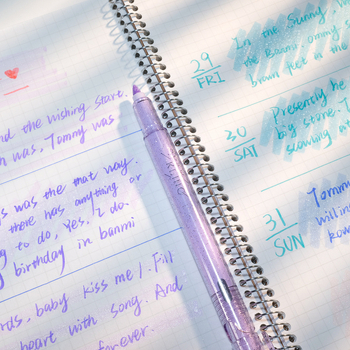 and the wishing start.
was, Tommy was
s was the that way.
there has anything or
to do, Yes, I do.
birthday in banmi
rds, baby kiss me!. Fill
heart with song. And
for-ever.
29
FRI
In the Sunny
the Banmi, ommy
brown feet in the
30
SAT
Presently he
by store. T
31
SUN
Tommy
willin
kow